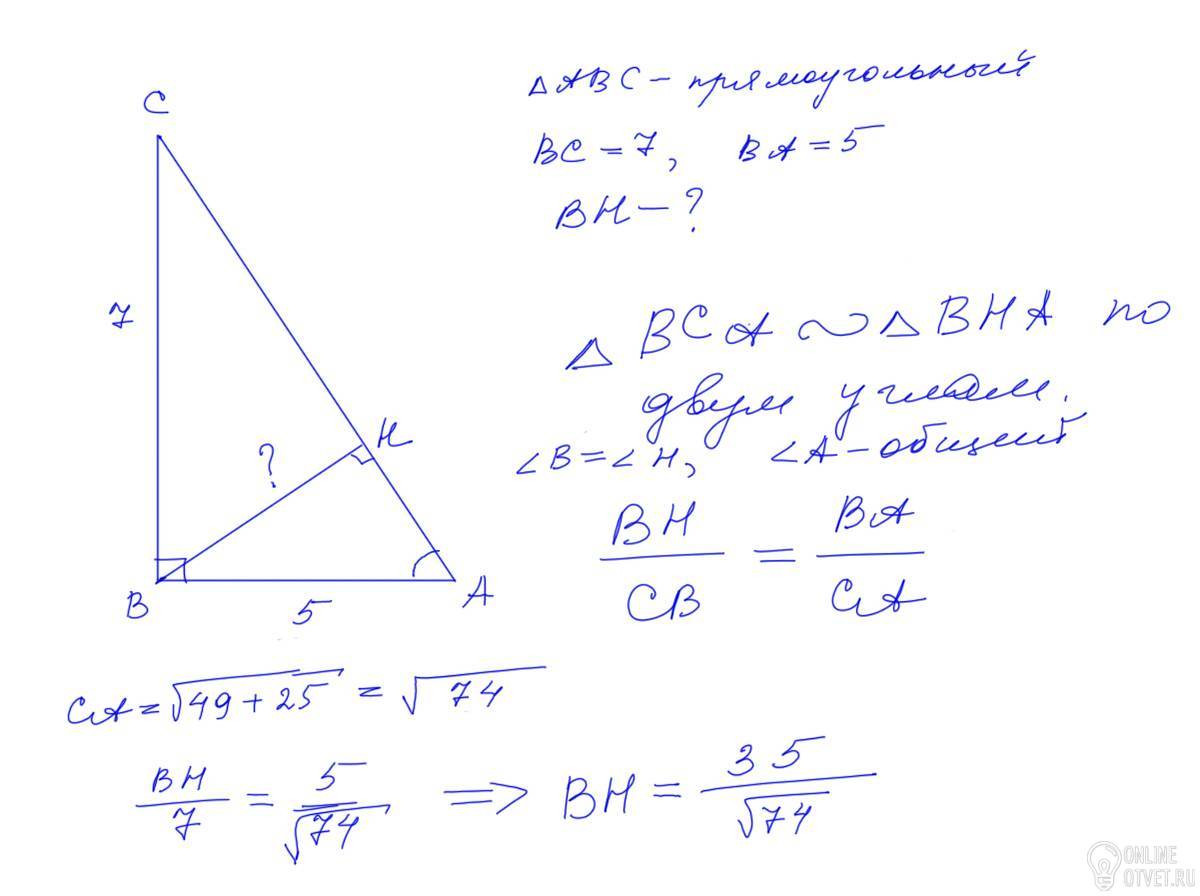 △ABC – прямоугольный
BC = 7, BA = 5
BH – ?
△BCA ∾ △BHA по
двум углам.
∠B = ∠H, ∠A – общий
BH/CB = BA/CA
C
7
?
H
B
5
A
CA = √49 + 25 = √74
BH/7 = 5/√74 ⟹ BH = 35/√74
ONLINE
OTVET.RU